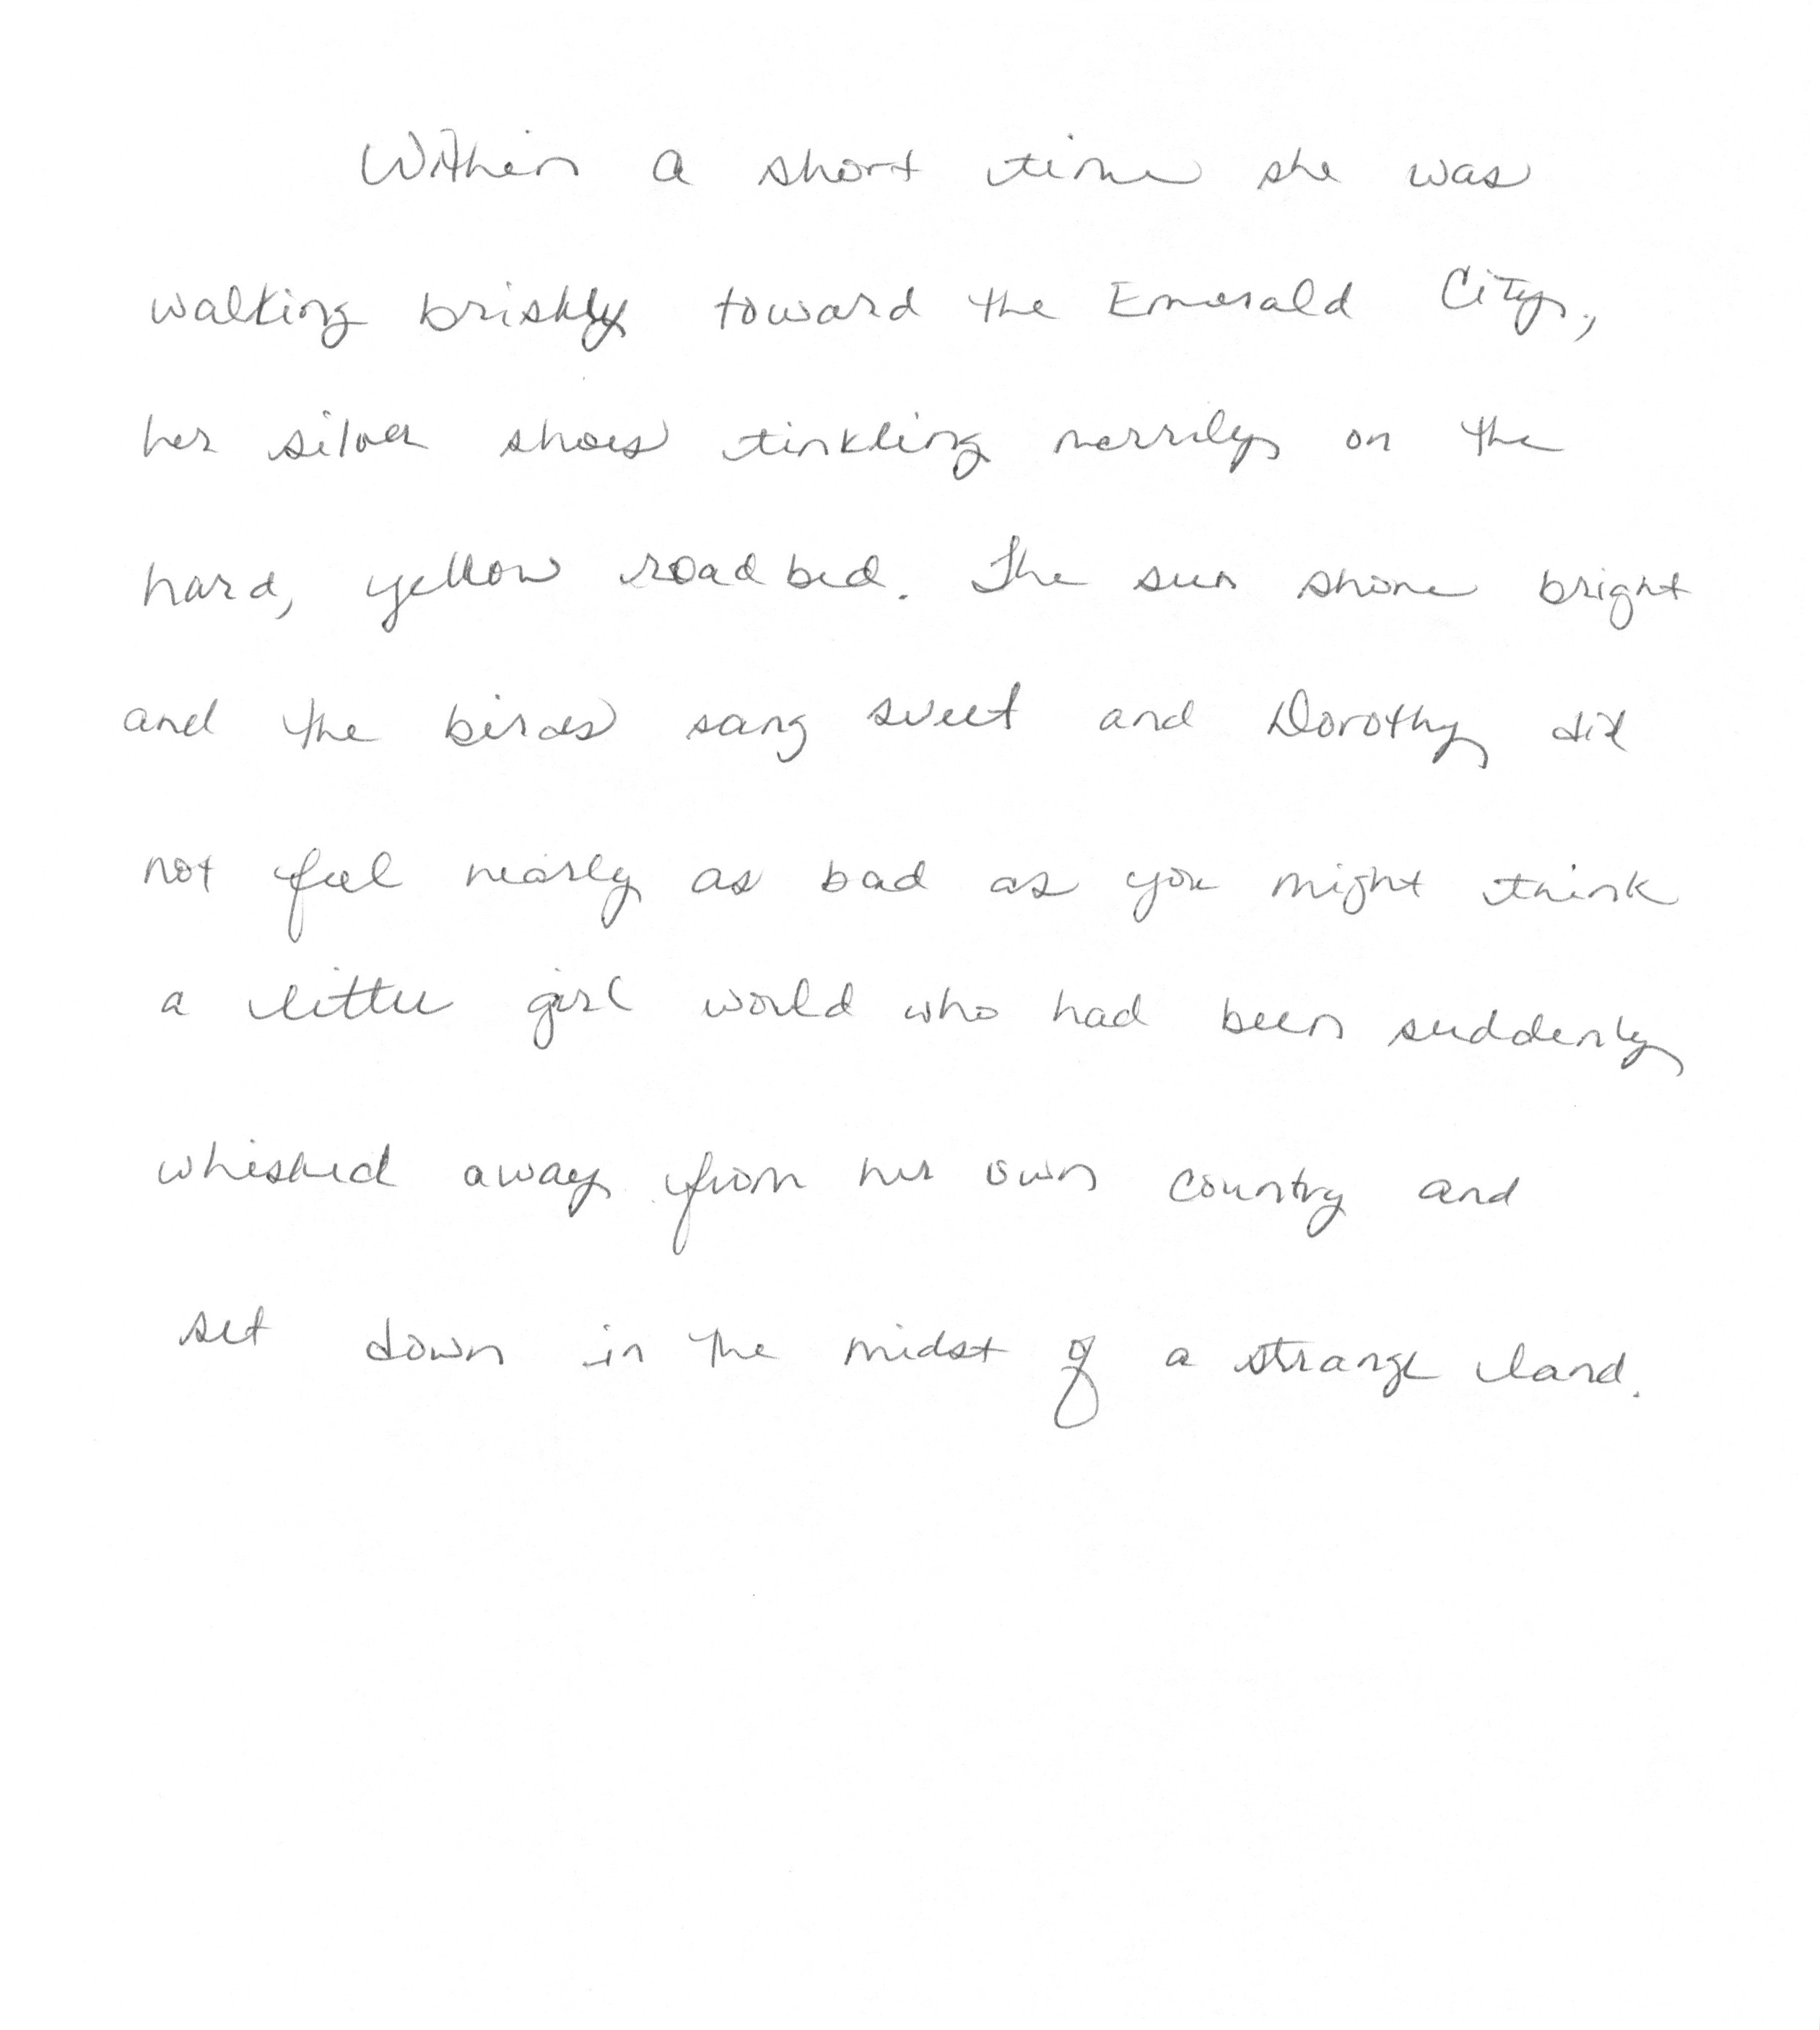 Within a short time she was
walking briskly toward the Emerald City,
her silver shoes tinkling merrily on the
hard, yellow roadbed. The sun shone bright
and the birds sang sweet and Dorothy did
not feel nearly as bad as you might think
a little girl would who had been suddenly
whisked away from her own country and
set down in the midst of a strange land.